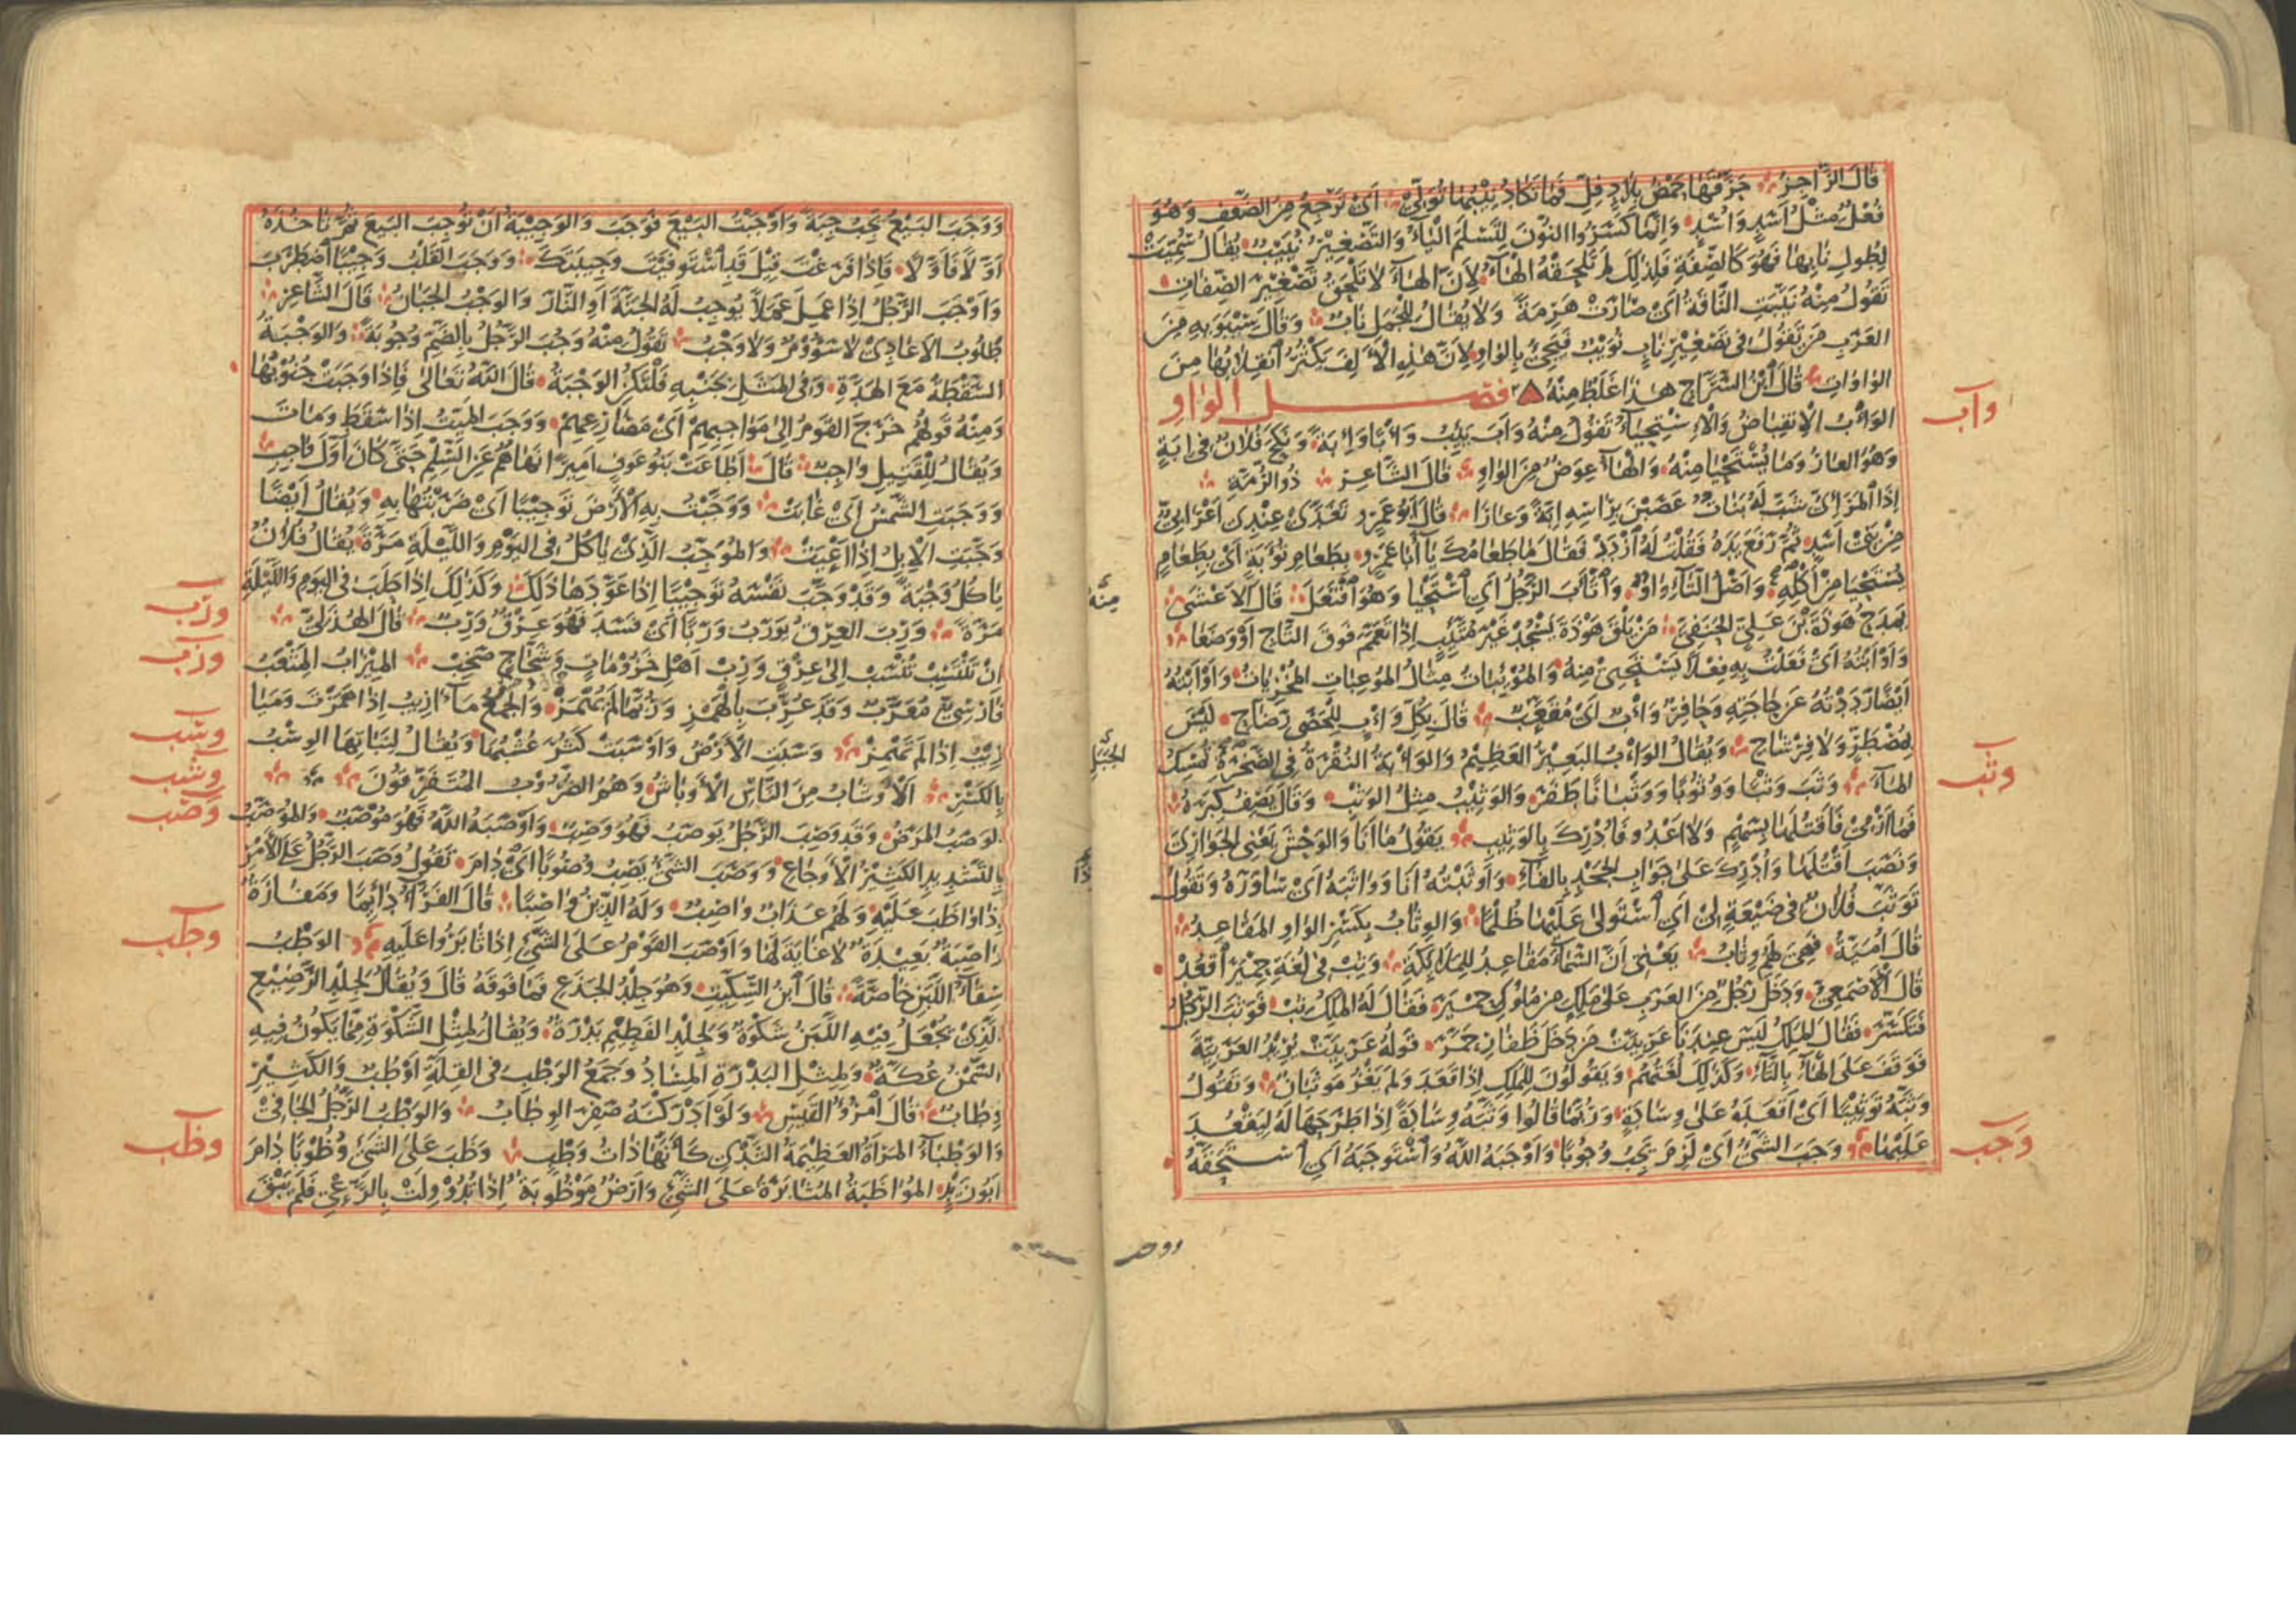 قَالَ الرَّاجِزُ حَرَّقَهَا حَمْضُ بِلَادٍ فِلِّ فَمَا تَكَادُ نِيْبُهَا تُوَلِّي أَيْ تَرْجِعُ مِنَ الضَّعْفِ وَهُوَ
فُعْلٌ مِثْلُ أَسَدٍ وَأُسْدٍ وَإِنَّمَا كَسَرُوا النُّوْنَ لِتَسْلَمَ الْيَاءُ وَالتَّصْغِيْرُ نُيَيْبٌ يُقَالُ سُمِّيَتْ
لِطُولِ نَابِهَا فَهُوَ كَالصِّفَةِ فَلِذٰلِكَ لَمْ تَلْحَقْهُ الْهَاءُ لِأَنَّ الْهَاءَ لَا تَلْحَقُ تَصْغِيْرَ الصِّفَاتِ
تَقُولُ مِنْهُ نَيَّبَتِ النَّاقَةُ أَيْ صَارَتْ هَرِمَةً وَلَا يُقَالُ لِلْجَمَلِ نَابٌ وَقَالَ سِيْبَوَيْهِ مِنَ
الْعَرَبِ مَنْ تَقُولُ فِي تَصْغِيْرِ نَابٍ نُوَيْبٌ فَيَجِيْءُ بِالْوَاوِ لِأَنَّ هٰذِهِ الْأَلِفَ يَكْثُرُ انْقِلَابُهَا مِنَ
الْوَاوَاتِ قَالَ ابْنُ السَّرَّاجِ هٰذَا غَلَطٌ مِنْهُ فصل الواو
وأب
الْوَأْبُ الْاِنْقِبَاضُ وَالْاِسْتِحْيَاءُ تَقُولُ مِنْهُ وَأَبَ يَئِبُ وَأْبًا وَإِبَةً وَنَكَحَ فُلَانٌ فِي إِبَةٍ
وَهُوَ الْعَارُ وَمَا يُسْتَحْيَا مِنْهُ وَالْهَاءُ عِوَضٌ مِنَ الْوَاوِ قَالَ الشَّاعِرُ ذُو الرُّمَّةِ
إِذَا الْمَرَئِيُّ شَبَّ لَهُ بَنَاتٌ عَصَبْنَ بِرَأْسِهِ إِبَةً وَعَارَا قَالَ أَبُو عَمْرٍو تَغَدَّى عِنْدِي أَعْرَابِيٌّ
مِنْ بَنِي أَسَدٍ ثُمَّ رَفَعَ يَدَهُ فَقُلْتُ لَهُ ازْدَدْ فَقَالَ مَا طَعَامُكَ يَا أَبَا عَمْرٍو بِطَعَامِ تُؤَبَةٍ أَيْ بِطَعَامٍ
يُسْتَحْيَا مِنْ أَكْلِهِ وَأَصْلُ التَّاءِ وَاوٌ وَاتَّأَبَ الرَّجُلُ أَيِ اسْتَحْيَا وَهُوَ افْتَعَلَ قَالَ الْأَعْشَى
منه
يَمْدَحُ هَوْذَةَ بْنَ عَلِيٍّ الْحَنَفِيَّ مَنْ يَلْقَ هَوْذَةَ يَسْجُدْ غَيْرَ مُتَّئِبٍ إِذَا تَعَمَّمَ فَوْقَ التَّاجِ أَوْ وَضَعَا
وَأَوْأَبْتُهُ أَيْ فَعَلْتُ بِهِ فِعْلًا يَسْتَحْيِي مِنْهُ وَالْمُؤْئِبَاتُ مِثَالُ الْمُوعِبَاتِ الْمُخْزِيَاتُ وَأَوْأَبْتُهُ
أَيْضًا رَدَدْتُهُ عَنْ حَاجَتِهِ وَحَافِرٌ وَأْبٌ أَيْ مُقَعَّبٌ قَالَ بِكُلِّ وَأْبٍ لِلْحَصَى رَضَّاحِ لَيْسَ
بِمُصْطَرٍّ وَلَا فِرْشَاحِ وَيُقَالُ الْوَأْبُ الْبَعِيْرُ الْعَظِيْمُ وَالْوَأْبَةُ النُّقْرَةُ فِي الصَّخْرَةِ تُمْسِكُ
وثب
الْمَاءَ وَثَبَ وَثْبًا وَوُثُوْبًا وَوَثَبَانًا طَفَرَ وَالْوَثِيْبُ مِثْلُ الْوَثْبِ وَقَالَ يَصِفُ كِبَرَهُ
فَمَا أَرْمِي فَأَقْتُلَهَا بِسَهْمِي وَلَا أَعْدُو فَأُدْرِكَ بِالْوَثِيْبِ يَقُولُ مَا أَنَا وَالْوَحْشَ يَعْنِي الْجَوَارِيَ
وَنَصَبَ أَقْتُلَهَا وَأُدْرِكَ عَلَى جَوَابِ الْجَحْدِ بِالْفَاءِ وَأَوْثَبْتُهُ أَنَا وَوَاثَبَهُ أَيْ سَاوَرَهُ وَتَقُولُ
تَوَثَّبَ فُلَانٌ فِي ضَيْعَةٍ لِي أَيِ اسْتَوْلَى عَلَيْهَا ظُلْمًا وَالْوِثَابُ بِكَسْرِ الْوَاوِ الْمَقَاعِدُ
قَالَ أُمَيَّةُ فَهِيَ لَهُمْ وِثَابُ يَعْنِي أَنَّ السَّمَاءَ مَقَاعِدُ لِلْمَلَائِكَةِ وَثِبْ فِي لُغَةِ حِمْيَرَ اقْعُدْ
قَالَ الْأَصْمَعِيُّ وَدَخَلَ رَجُلٌ مِنَ الْعَرَبِ عَلَى مَلِكٍ مِنْ مُلُوكِ حِمْيَرَ فَقَالَ لَهُ الْمَلِكُ ثِبْ فَوَثَبَ الرَّجُلُ
فَتَكَسَّرَ فَقَالَ الْمَلِكُ لَيْسَ عِنْدَنَا عَرَبِيَّتْ مَنْ دَخَلَ ظَفَارِ حَمَّرَ قَوْلُهُ عَرَبِيَّتْ يُرِيْدُ الْعَرَبِيَّةَ
فَوَقَفَ عَلَى الْهَاءِ بِالتَّاءِ وَكَذٰلِكَ لُغَتُهُمْ وَيَقُولُونَ لِلْمَلِكِ إِذَا قَعَدَ وَلَمْ يَغْزُ مَوْثَبَانُ وَتَقُولُ
وَثَّبَهُ تَوْثِيْبًا أَيْ أَقْعَدَهُ عَلَى وِسَادَةٍ وَرُبَّمَا قَالُوا وَثَّبَهُ وِسَادَةً إِذَا طَرَحَهَا لَهُ لِيَقْعُدَ
وجب
عَلَيْهَا وَجَبَ الشَّيْءُ أَيْ لَزِمَ يَجِبُ وُجُوْبًا وَأَوْجَبَهُ اللّٰهُ وَاسْتَوْجَبَهُ أَيِ اسْتَحَقَّهُ
ووجب
وَوَجَبَ الْبَيْعُ يَجِبُ جِبَةً وَأَوْجَبْتُ الْبَيْعَ فَوَجَبَ وَالْوَجِيْبَةُ أَنْ تُوْجِبَ الْبَيْعَ ثُمَّ تَأْخُذَهُ
أَوَّلًا فَأَوَّلًا فَإِذَا فَرَغْتَ قِيْلَ قَدِ اسْتَوْفَيْتَ وَجِيْبَتَكَ وَوَجَبَ الْقَلْبُ وَجِيْبًا اضْطَرَبَ
وَأَوْجَبَ الرَّجُلُ إِذَا عَمِلَ عَمَلًا يُوْجِبُ لَهُ الْجَنَّةَ أَوِ النَّارَ وَالْوَجْبُ الْجَبَانُ قَالَ الشَّاعِرُ
طَلُوْبُ الْأَعَادِيْ لَا سَؤُوْمٌ وَلَا وَجْبُ تَقُولُ مِنْهُ وَجُبَ الرَّجُلُ بِالضَّمِّ وُجُوْبَةً وَالْوَجْبَةُ
السَّقْطَةُ مَعَ الْهَدَّةِ وَفِي الْمَثَلِ بِجَنْبِهِ فَلْتَكُنِ الْوَجْبَةُ قَالَ اللّٰهُ تَعَالَى فَإِذَا وَجَبَتْ جُنُوْبُهَا
وَمِنْهُ قَوْلُهُمْ خَرَجَ الْقَوْمُ إِلَى مَوَاجِبِهِمْ أَيْ مَصَارِعِهِمْ وَوَجَبَ الْمَيِّتُ إِذَا سَقَطَ وَمَاتَ
وَيُقَالُ لِلْقَتِيْلِ وَاجِبٌ قَالَ أَطَاعَتْ بَنُو عَوْفٍ أَمِيْرًا نَهَاهُمْ عَنِ السِّلْمِ حَتَّى كَانَ أَوَّلَ وَاجِبِ
وَوَجَبَتِ الشَّمْسُ أَيْ غَابَتْ وَوَجَّبْتُ بِهِ الْأَرْضَ تَوْجِيْبًا أَيْ ضَرَبْتُهَا بِهِ وَيُقَالُ أَيْضًا
وَجَّبَتِ الْإِبِلُ إِذَا أَعْيَتْ وَالْمُوَجِّبُ الَّذِيْ يَأْكُلُ فِي الْيَوْمِ وَاللَّيْلَةِ مَرَّةً يُقَالُ فُلَانٌ
يَأْكُلُ وَجْبَةً وَقَدْ وَجَّبَ نَفْسَهُ تَوْجِيْبًا إِذَا عَوَّدَهَا ذٰلِكَ وَكَذٰلِكَ إِذَا حَلَبَ فِي الْيَوْمِ وَاللَّيْلَةِ
ورب
مَرَّةً وَرِبَ الْعِرْقُ يَوْرَبُ وَرَبًا أَيْ فَسَدَ فَهُوَ عِرْقٌ وَرِبٌ قَالَ الْهُذَلِيُّ
وزب
إِنْ تَنْتَسِبْ تُنْسَبْ إِلَى عِرْقٍ وَرِبْ أَهْلِ خَزُوْمَاتٍ وَشَحَّاجٍ صَخِبْ الْمِيْزَابُ الْمِثْعَبُ
فَارِسِيٌّ مُعَرَّبٌ وَقَدْ عُرِّبَ بِالْهَمْزِ وَرُبَّمَا لَمْ يُهْمَزْ وَالْجَمْعُ مَآزِيْبُ إِذَا هَمَزْتَ وَمَيَا
وشب
زِيْبُ إِذَا لَمْ تَهْمِزْ وَسَبَتِ الْأَرْضُ وَأَوْسَبَتْ كَثُرَ عُشْبُهَا وَيُقَالُ لِنَبَاتِهَا الْوِسْبُ
وشب
بِالْكَسْرِ الْأَوْشَابُ مِنَ النَّاسِ الْأَوْبَاشُ وَهُمُ الضُّرُوْبُ الْمُتَفَرِّقُونَ
وصب
الْوَصَبُ الْمَرَضُ وَقَدْ وَصِبَ الرَّجُلُ يَوْصَبُ فَهُوَ وَصِبٌ وَأَوْصَبَهُ اللّٰهُ فَهُوَ مُوْصَبٌ وَالْمُوَصَّبُ
بِالتَّشْدِيْدِ الْكَثِيْرُ الْأَوْجَاعِ وَوَصَبَ الشَّيْءُ يَصِبُ وُصُوْبًا أَيْ دَامَ تَقُولُ وَصَبَ الرَّجُلُ عَلَى الْأَمْرِ
إِذَا وَاظَبَ عَلَيْهِ وَلَهُمْ عَذَابٌ وَاصِبٌ وَلَهُ الدِّيْنُ وَاصِبًا قَالَ الْفَرَّاءُ دَائِمًا وَمَفَازَةٌ
وطب
وَاصِبَةٌ بَعِيْدَةٌ لَا غَايَةَ لَهَا وَأَوْصَبَ الْقَوْمُ عَلَى الشَّيْءِ إِذَا ثَابَرُوا عَلَيْهِ الْوَطْبُ
سِقَاءُ اللَّبَنِ خَاصَّةً قَالَ ابْنُ السِّكِّيْتِ وَهُوَ جِلْدُ الْجَذَعِ فَمَا فَوْقَهُ قَالَ وَيُقَالُ لِجِلْدِ الرَّضِيْعِ
الَّذِيْ يُجْعَلُ فِيْهِ اللَّبَنُ شَكْوَةٌ وَلِجِلْدِ الْفَطِيْمِ بَدْرَةٌ وَيُقَالُ لِمِثْلِ الشَّكْوَةِ مِمَّا يَكُونُ فِيْهِ
السَّمْنُ عُكَّةٌ وَلِمِثْلِ الْبَدْرَةِ الْمِسْأَدُ وَجَمْعُ الْوَطْبِ فِي الْقِلَّةِ أَوْطُبٌ وَالْكَثِيْرُ
وِطَابٌ قَالَ امْرُؤُ الْقَيْسِ وَلَوْ أَدْرَكْنَهُ صَفِرَ الْوِطَابُ وَالْوَطْبُ الرَّجُلُ الْجَافِيْ
وظب
وَالْوَطْبَاءُ الْمَرْأَةُ الْعَظِيْمَةُ الثَّدْيِ كَأَنَّهَا ذَاتُ وَطْبٍ وَظَبَ عَلَى الشَّيْءِ وُظُوْبًا دَامَ
أَبُو زَيْدٍ الْمُوَاظَبَةُ الْمُثَابَرَةُ عَلَى الشَّيْءِ وَأَرْضٌ مَوْظُوْبَةٌ إِذَا تُدُوْوِلَتْ بِالرَّعْيِ فَلَمْ يَبْقَ